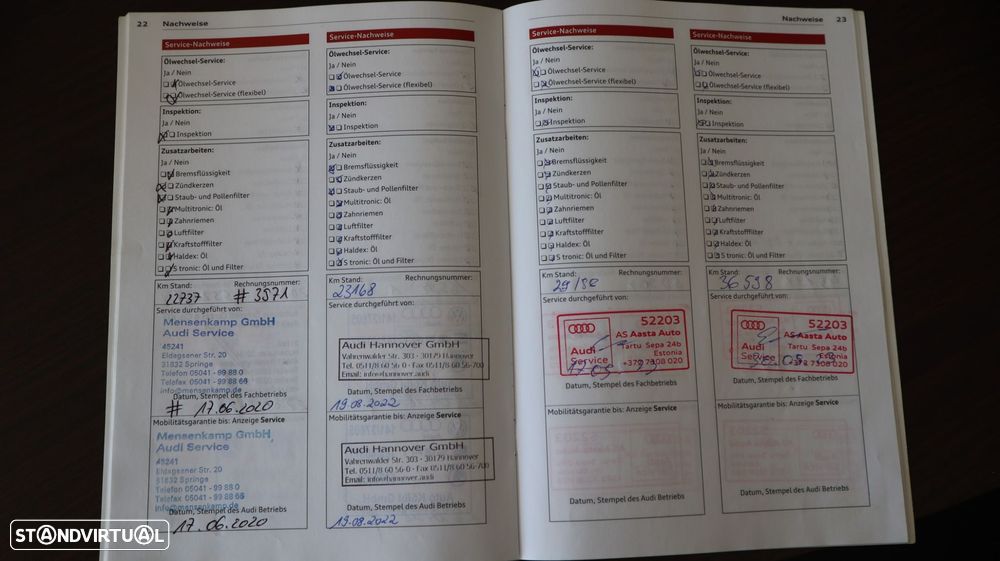 22 Nachweise
Service-Nachweise
Ölwechsel-Service:
Ja / Nein
Ölwechsel-Service
Ölwechsel-Service (flexibel)
Inspektion:
Ja / Nein
Inspektion
Zusatzarbeiten:
Ja / Nein
Bremsflüssigkeit
Zündkerzen
Staub- und Pollenfilter
Multitronic: Öl
Zahnriemen
Luftfilter
Kraftstofffilter
Haldex: Öl
S tronic: Öl und Filter
Km Stand: Rechnungsnummer:
22737 # 3571
Service durchgeführt von:
Mensenkamp GmbH
Audi Service
45241
Eldagsener Str. 20
31832 Springe
Telefon 05041 - 99 88 0
Telefax 05041 - 99 88 66
info@mensenkamp.de
Datum, Stempel des Fachbetriebs
# 17.06.2020
Mobilitätsgarantie bis: Anzeige Service
Mensenkamp GmbH
Audi Service
45241
Eldagsener Str. 20
31832 Springe
Telefon 05041 - 99 88 0
Telefax 05041 - 99 88 66
info@mensenkamp.de
Datum, Stempel des Audi Betriebs
17.06.2020
Service-Nachweise
Ölwechsel-Service:
Ja / Nein
Ölwechsel-Service
Ölwechsel-Service (flexibel)
Inspektion:
Ja / Nein
Inspektion
Zusatzarbeiten:
Ja / Nein
Bremsflüssigkeit
Zündkerzen
Staub- und Pollenfilter
Multitronic: Öl
Zahnriemen
Luftfilter
Kraftstofffilter
Haldex: Öl
S tronic: Öl und Filter
Km Stand: Rechnungsnummer:
23168
Service durchgeführt von:
Audi Hannover GmbH
Vahrenwalder Str. 303 - 30179 Hannover
Tel. 0511/8 60 56-0 - Fax 0511/8 60 56-700
Email: info@hannover.audi
Datum, Stempel des Fachbetriebs
19.08.2022
Mobilitätsgarantie bis: Anzeige Service
Audi Hannover GmbH
Vahrenwalder Str. 303 - 30179 Hannover
Tel. 0511/8 60 56-0 - Fax 0511/8 60 56-700
Email: info@hannover.audi
Datum, Stempel des Audi Betriebs
19.08.2022
Nachweise 23
Service-Nachweise
Ölwechsel-Service:
Ja / Nein
Ölwechsel-Service
Ölwechsel-Service (flexibel)
Inspektion:
Ja / Nein
Inspektion
Zusatzarbeiten:
Ja / Nein
Bremsflüssigkeit
Zündkerzen
Staub- und Pollenfilter
Multitronic: Öl
Zahnriemen
Luftfilter
Kraftstofffilter
Haldex: Öl
S tronic: Öl und Filter
Km Stand: Rechnungsnummer:
Service durchgeführt von:
52203
AS Aasta Auto
Audi
Service
Tartu Sepa 24b
Estonia
+372 7308 020
Datum, Stempel des Fachbetriebs
Mobilitätsgarantie bis: Anzeige Service
Datum, Stempel des Audi Betriebs
Service-Nachweise
Ölwechsel-Service:
Ja / Nein
Ölwechsel-Service
Ölwechsel-Service (flexibel)
Inspektion:
Ja / Nein
Inspektion
Zusatzarbeiten:
Ja / Nein
Bremsflüssigkeit
Zündkerzen
Staub- und Pollenfilter
Multitronic: Öl
Zahnriemen
Luftfilter
Kraftstofffilter
Haldex: Öl
S tronic: Öl und Filter
Km Stand: Rechnungsnummer:
36598
Service durchgeführt von:
52203
AS Aasta Auto
Audi
Service
Tartu Sepa 24b
Estonia
+372 7308 020
Datum, Stempel des Fachbetriebs
Mobilitätsgarantie bis: Anzeige Service
Datum, Stempel des Audi Betriebs
STANDVIRTUAL